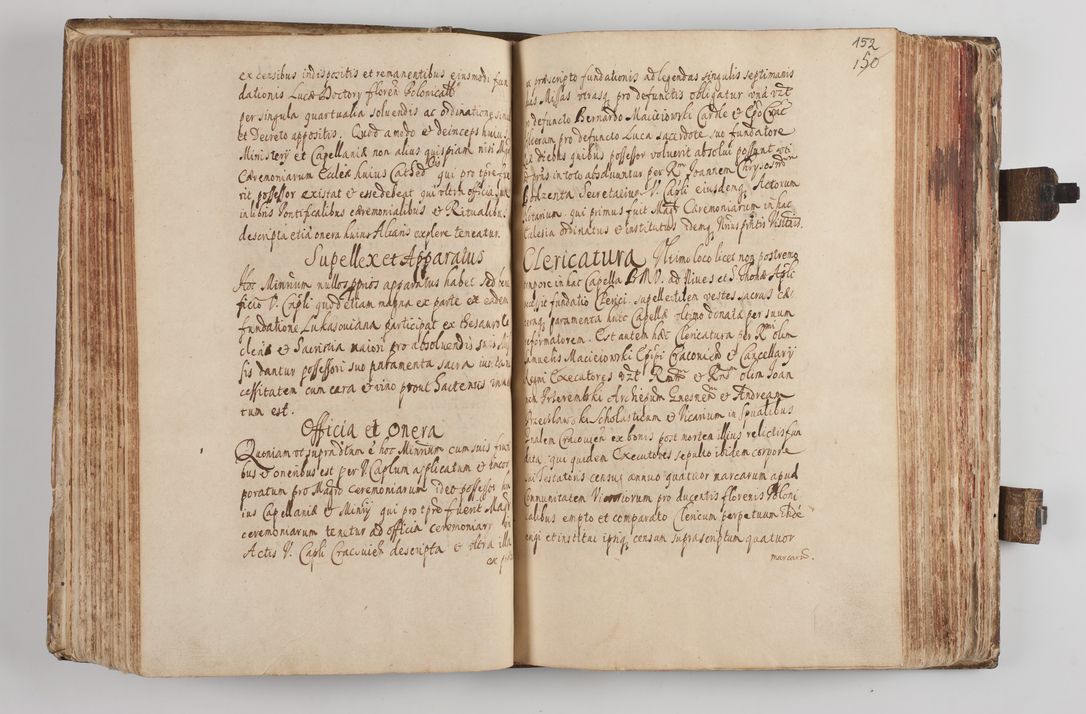 ex censibus indispositis et remanentibus eiusmodi fun
dationis Lucæ Doctory floren Polonicall
per singula quartualia soluendis ac ordinatione
et Decreto appositis. Quod a modo et deinceps huius
Ministery et Capellaniæ non alius quispiam nisi Mgr
Cæremoniarum Ecclæ huius Cathed qui pro tpre fue
rit possessor existat et esse debeat, qui ultra officia sua
in libris Pontificalibus cæremonialibus et Ritualibus
descripta etiā onera huius Altaris explere teneatur.
Supellex et Apparatus
Hoc Minrium nullos pprios apparatus habet sed
ficio V. Capli quod etiam magna ex parte et eadem
fundatione Lukasouiana participat ex thesauro
et Sacristia maiori pro absoluendis suis
sis dantur possessori suo paramenta sacra iuxta
cessitatem cum cera et vino prout Sactenus
tum est.
Officia et onera
Quoniam ut supra dtum ē hoc Minrium cum suis fruc
bus et oneribus est per V. Caplum applicatum et incor
poratum pro Mgro ceremoniarum ideo possessor hu
ius Capellaniæ et Minry qui pro tpre fuerit Magr
ceremoniarum tenetur ad officia ceremoniarū in
Actis V. Capli Cracouień descripta et ultra illa
ex
152
150
præscripto fundationis ad legendas singulis septimanis
Missas utrasq pro defunctis obligatur unā vzt
defuncto Bernardo Macieiowski Cardle et Epo Crac
alteram pro defuncto Luca sacerdote suo fundatore
diebus quibus possessor voluerit absolui possunt
in toto absoluuntur per Rm Joannem Chrysostm
Bodzenta Secretarium V. Capli eiusdenq Actorum
Notarium, qui primus fuit Magr Cæremoniarum in hac
Ecclesia ordinatus et institutus idemq huius pntis Visitatis.
Clericatura Vltimo loco licet non postremo
tempore in hac Capella B.M.V. ad Niues et S. Thomæ Apli
fundatio Clerici supellectilem vestes sacras
paramenta huic Capellæ ultimo donata per suum
reformatorem. Est autem hæc Clericatura per Rm olim
Samuelis Macieiowski Epispi Cracouień et Cancellary
Regni Executores vzt Rmm et Rm olim Joan
nem Przerembski Archiepum Gnesnen et Andream
Przecslawski Scholasticum et Vicarium in spualibus
Gnalem Cracouień ex bonis post mortem illius relictis fun
data qui quidem Executores sepulto ibidem corpore
sui Testatoris censu annuo quatuor marcarum apud
Communitatem Vicariorum pro ducentis florenis Poloni
calibus empto et comparato Clericum perpetuum
erigi et institui ipsiq censum suprascriptum quatuor
marcarū.